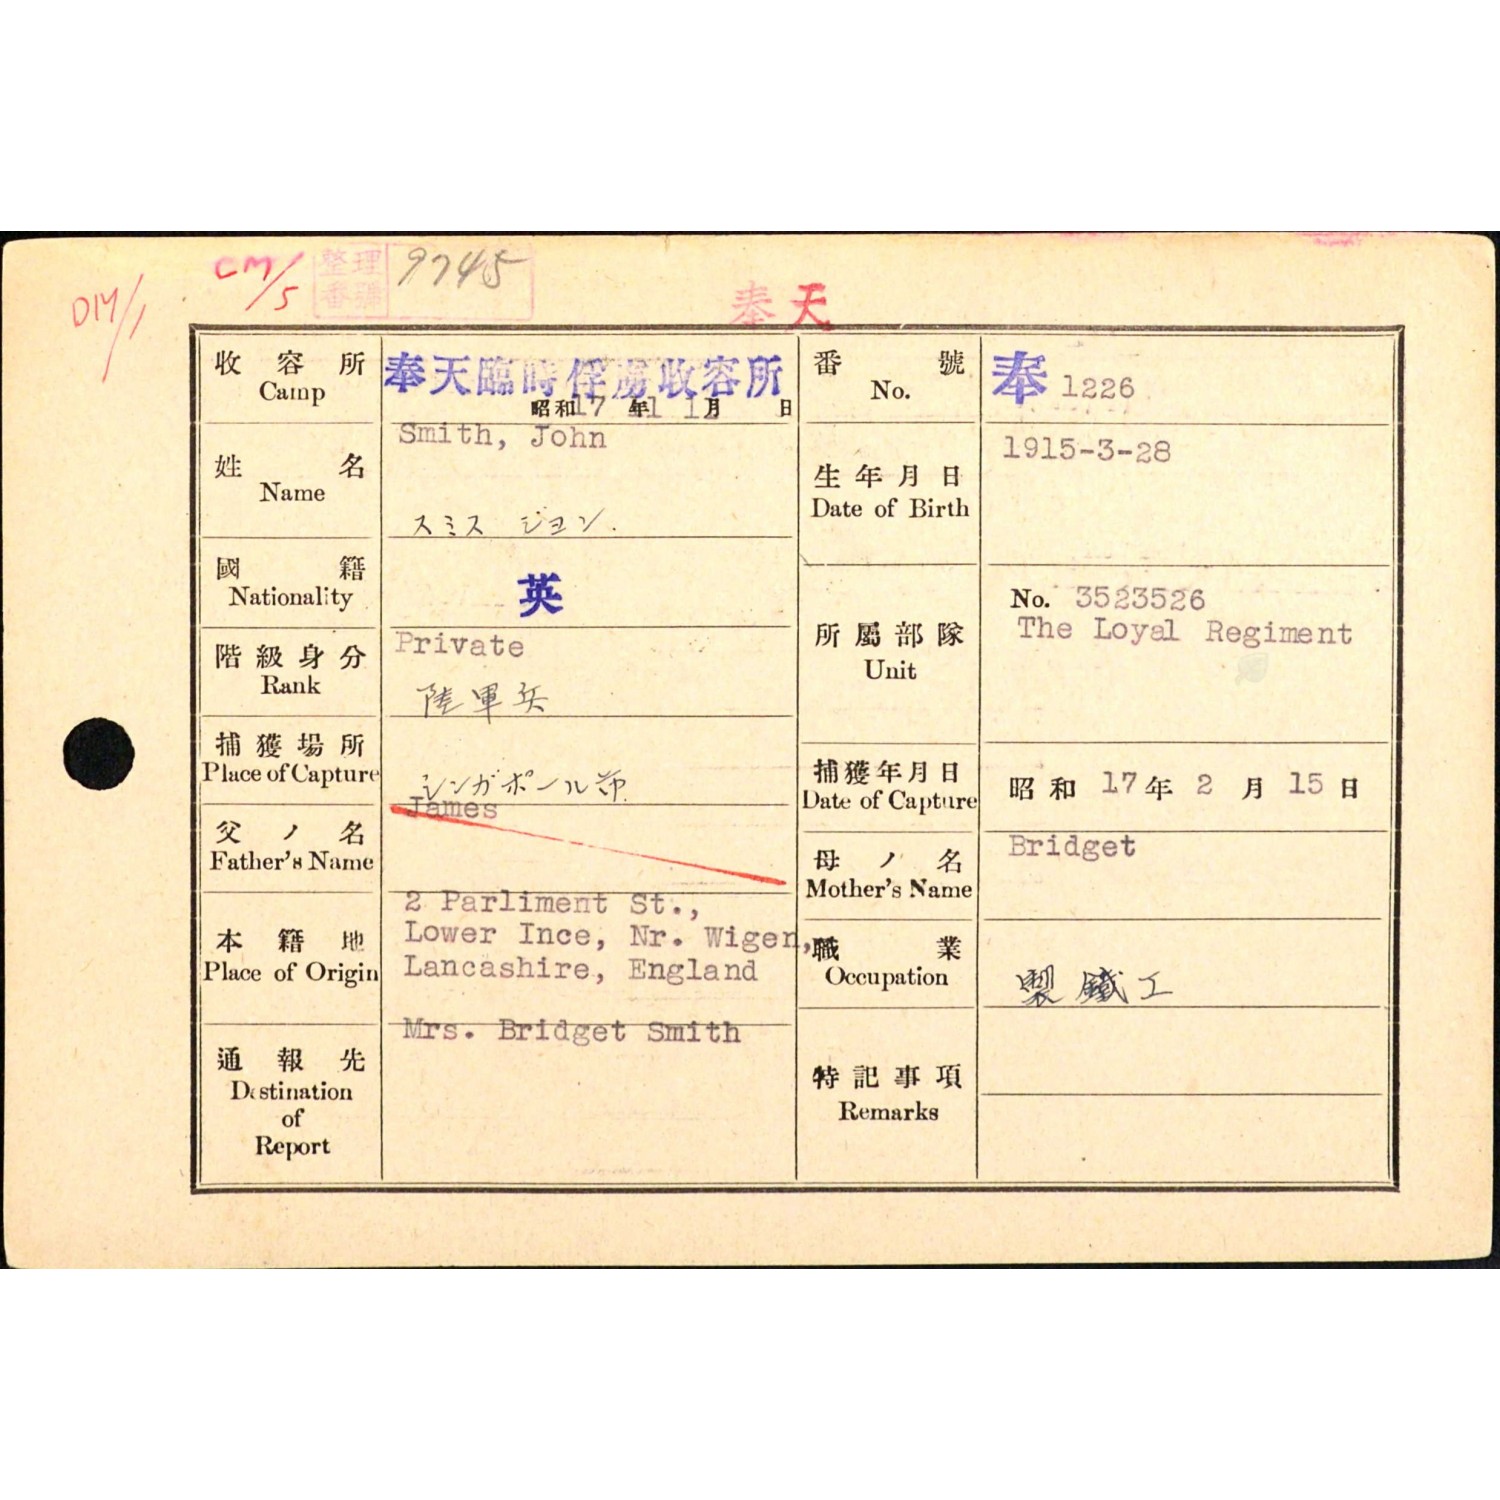 DM/1
CM/5
整理番號 9745
奉天
收容所
Camp
奉天臨時俘虜收容所
昭和17年 11月 日
番號
No.
奉 1226
姓名
Name
Smith, John
スミス ジヨン.
生年月日
Date of Birth
1915-3-28
國籍
Nationality
英
所屬部隊
Unit
No. 3523526
The Loyal Regiment
階級身分
Rank
Private
陸軍兵
捕獲場所
Place of Capture
シンガポール
捕獲年月日
Date of Capture
昭和 17年 2月 15日
父ノ名
Father's Name
James
母ノ名
Mother's Name
Bridget
本籍地
Place of Origin
2 Parliment St.,
Lower Ince, Nr. Wigen,
Lancashire, England
職業
Occupation
製鐵工
通報先
Destination
of
Report
Mrs. Bridget Smith
特記事項
Remarks